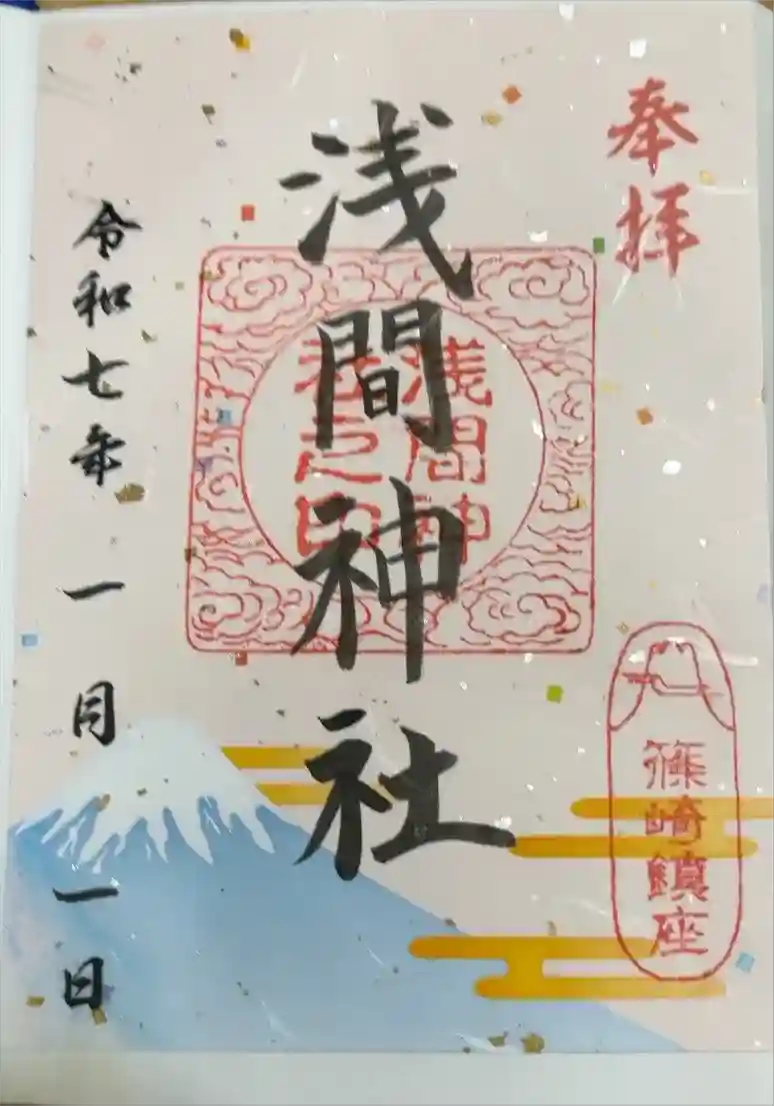 奉拝
篠崎鎮座
浅間神社
浅間神
社之印
令和七年一月一日